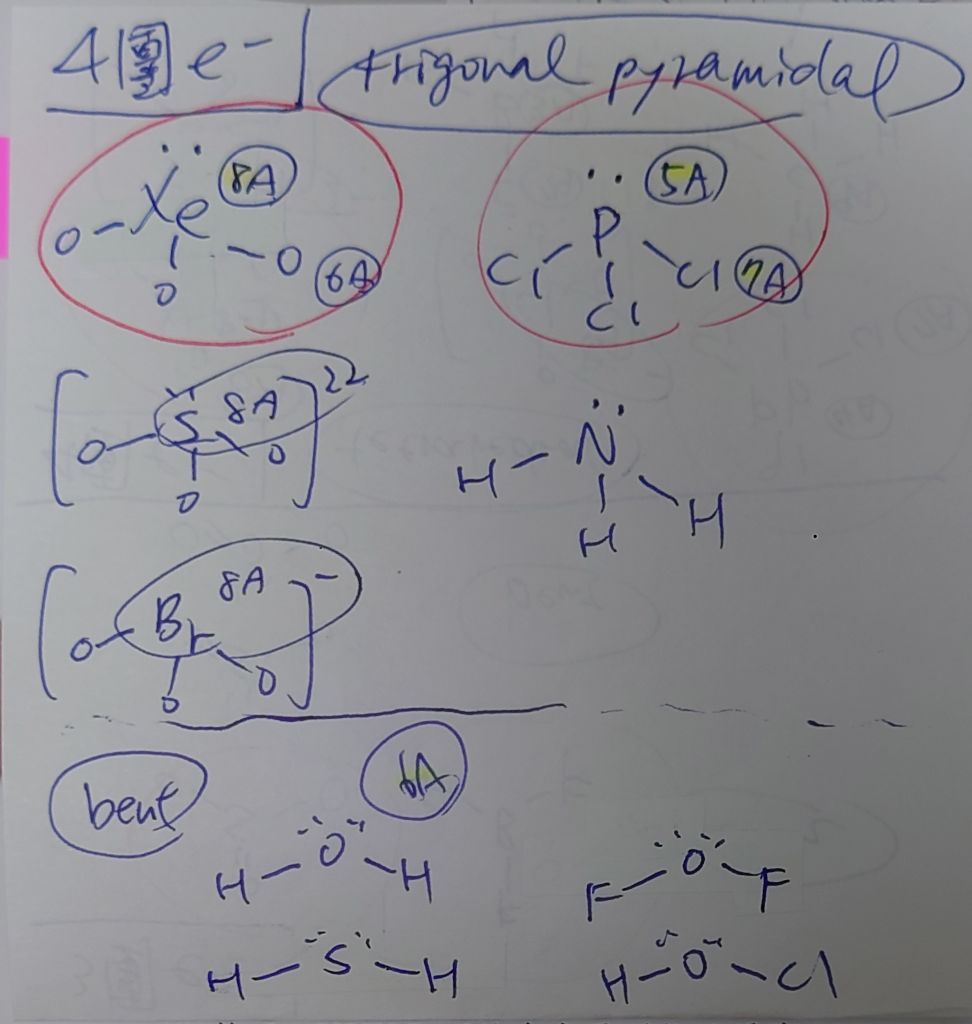 4圈 e⁻ | trigonal pyramidal
:Xe 8A
O-Xe-O 6A
O
.. 5A
P
Cl Cl 7A
Cl
[ S 8A ] 22
O O
O
..
N
H H
H
[ Br 8A ] -
O O
O
bent 6A
H-O-H
F-O-F
H-S-H
H-O-Cl